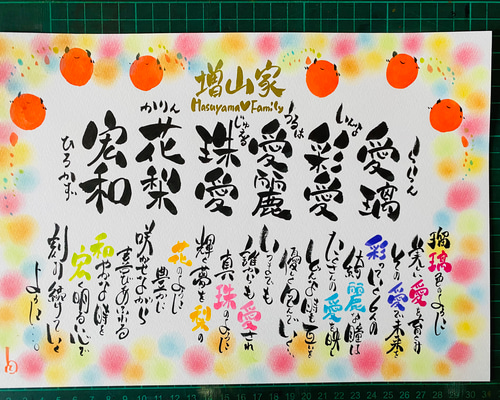 増山家
Masuyama♥Family
愛璃
彩愛
愛麗
うるは
珠愛
花梨
かりん
宏和
ひろかず
瑠璃色のように
美しい愛を育くみ
その愛が未来を
彩っていく6人の
綺麗な瞳は
たくさんの愛を映し
どんな時も互いを
優しく包んでいく…
いつまでも
誰からも愛され
真珠のように
輝く夢を梨の
花のように
豊かに
咲かせながら
喜びあふれる
和やかな時を
宏く明るい心で
刻み続けていく
ように…。